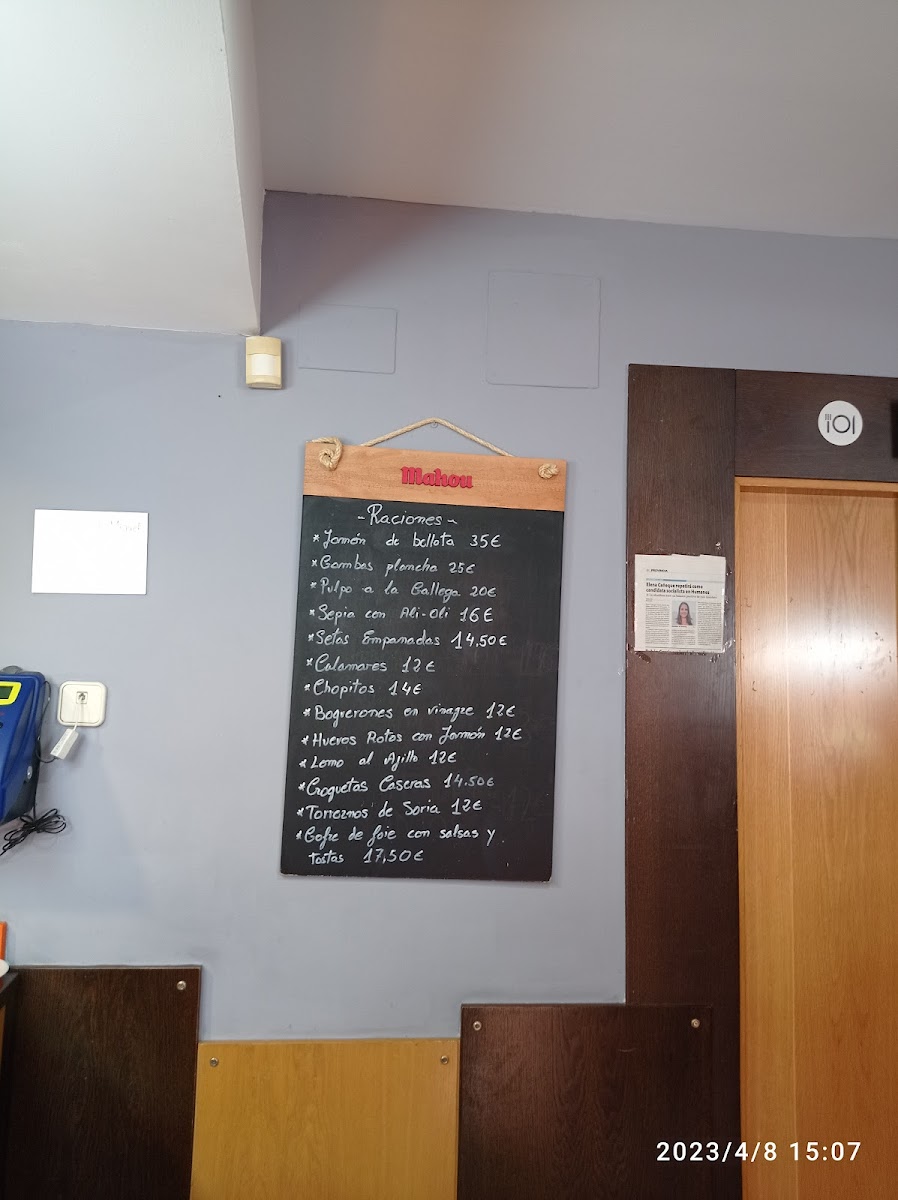 Mahou
- Raciones -
* Jamón de bellota 35€
* Gambas plancha 25€
* Pulpo a la Gallega 20€
* Sepia con Ali-Oli 16€
* Setas Empanadas 14,50€
* Calamares 12€
* Chopitos 14€
* Boquerones en vinagre 12€
* Huevos Rotos con Jamón 12€
* Lomo al Ajillo 12€
* Croquetas Caseras 14.50€
* Torreznos de Soria 12€
* Cofre de foie con salsas y
tostas 17,50€
Elena Cañeque repetirá como
candidata socialista en Humanes
2023/4/8 15:07